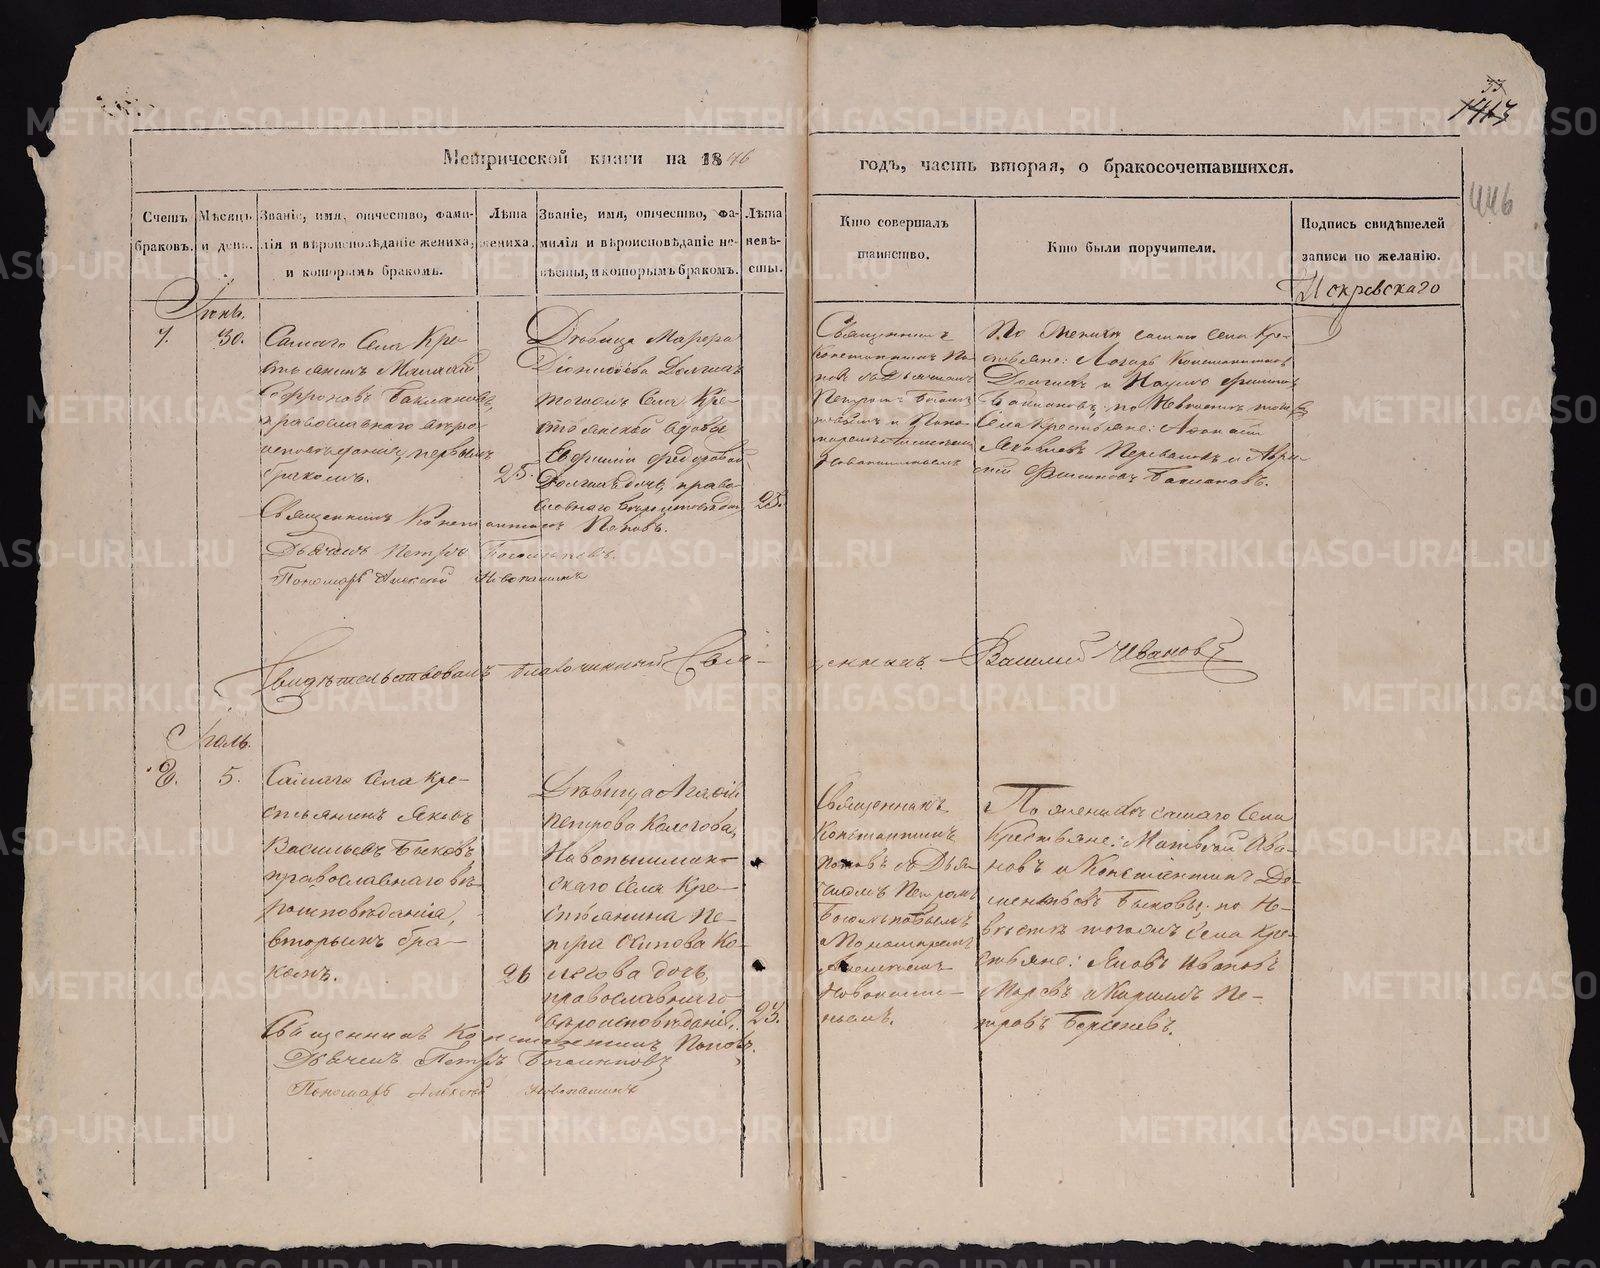 33
1413
446
Метрической книги на 1846
годъ, часть вторая, о бракосочетавшихся.
Счетъ браковъ.
Мѣсяцъ и день.
Званіе, имя, отчество, фами-
лія и вѣроисповѣданіе жениха,
и которымъ бракомъ.
Лѣта
жениха.
Званіе, имя, отчество, фа-
милія и вѣроисповѣданіе не-
вѣсты, и которымъ бракомъ.
Лѣта
невѣ-
сты.
Кто совершалъ
таинство.
Кто были поручители.
Подпись свидѣтелей
записи по желанію.
Искревскаго
Іюнь.
7.
30.
Самаго Села Кре-
стьянинъ
Софроновъ Баклановъ,
православнаго вѣро
исповѣданія, первымъ
бракомъ.
25.
Дѣвица Марѳа
Діонисіева
тогоже Села Кре-
стьянской вдовы
Евфиміи Федоровой
дочь, право-
славнаго вѣроисповѣдан
25.
Священникъ
Константинъ По-
повъ съ Дьячкомъ
Петромъ
и Поно-
маремъ Алексѣемъ
Новопашинымъ
По Женихѣ самаго Села Кре-
стьяне:
и Наумъ
Баклановъ, по Невѣстѣ того же
Села Крестьяне:
Яковлевъ
Баклановъ.
Священникъ Константинъ Поповъ.
Дьячекъ Петръ Боголѣповъ.
Пономарь Алексѣй Новопашинъ
Свидѣтельствовалъ благочинный Свя-
щенникъ Василий Ивановъ
Іюль.
8.
5.
Самаго Села Кре-
стьянинъ Яковъ
Васильевъ Быковъ,
православнаго вѣ-
роисповѣданія,
вторымъ бра-
комъ.
26
Дѣвица Агафія
Петрова Колегова,
Новопышмин-
скаго Села Кре-
стьянина Пе-
тра Осипова Ко-
легова дочь,
православнаго
вѣроисповѣданія,
23.
Священникъ
Константинъ
Поповъ съ Дья-
чкомъ Петромъ
Боголѣповымъ
и Пономаремъ
Алексѣемъ
Новопаши-
нымъ.
По женихѣ самаго Села
Крестьяне: Матвѣй Ива-
новъ и Константинъ Де-
ментьевъ Быковы; по Не-
вѣстѣ тогоже Села Кре-
стьяне: Яковъ Ивановъ
и Кирилъ Пе-
тровъ Берсеневъ.
Священникъ Константинъ Поповъ.
Дьячекъ Петръ Боголѣповъ
Пономарь Алексѣй Новопашинъ
METRIKI.GASO-URAL.RU